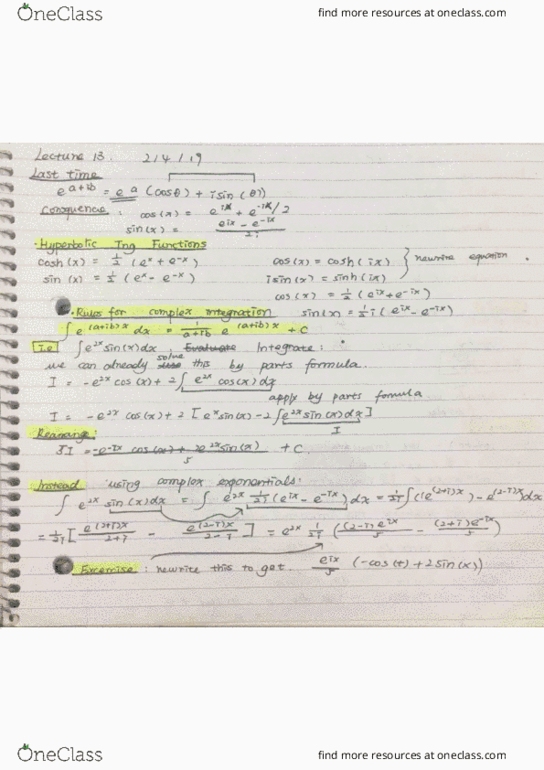 OneClass find more resources at oneclass.com
Lecture 13. 2/4/19
Last time
e^{a+ib} = e^a (cosθ) + isin(θ))
Consquence: cos(x) = e^{ix} + e^{-ix}/2
sin(x) = e^{ix} - e^{-ix} / 2i
Hyperbolic Trig Functions
cosh(x) = 1/2 (e^x + e^{-x}) cos(x) = cosh(ix) } rewrite equation.
sin(x) = 1/2 (e^x - e^{-x}) isin(x) = sinh(ix)
cos(x) = 1/2 (e^{ix} + e^{-ix})
Rules for complex integration sin(x) = 1/2 i (e^{ix} - e^{-ix})
∫e^{(a+ib)x} dx = 1/(a+ib) e^{(a+ib)x} + C
I.e ∫e^{2x}sin(x)dx, Evaluate Integrate:
we can already solve this by parts formula.
I = -e^{2x} cos(x) + 2∫e^{2x} cos(x) dx
apply by parts formula
I = -e^{2x} cos(x) + 2 [e^x sin(x) - 2∫e^{2x} sin(x)dx]
I
Rearange:
+ C
Instead using complex exponentials:
∫e^{2x} sin(x)dx = ∫e^{2x} 1/2i (e^{ix} - e^{-ix}) dx = 1/2i ∫(e^{(2+i)x}) - e^{(2-i)x} dx
= 1/2i [e^{(2+i)x}/2+i - e^{(2-i)x}/2-i] = e^{2x} 1/2i ((2-i)e^{ix}/5 - (2+i)e^{-ix}/5)
rewrite this to get. e^{ix}/5 (-cos(x) + 2sin(x))
OneClass find more resources at oneclass.com